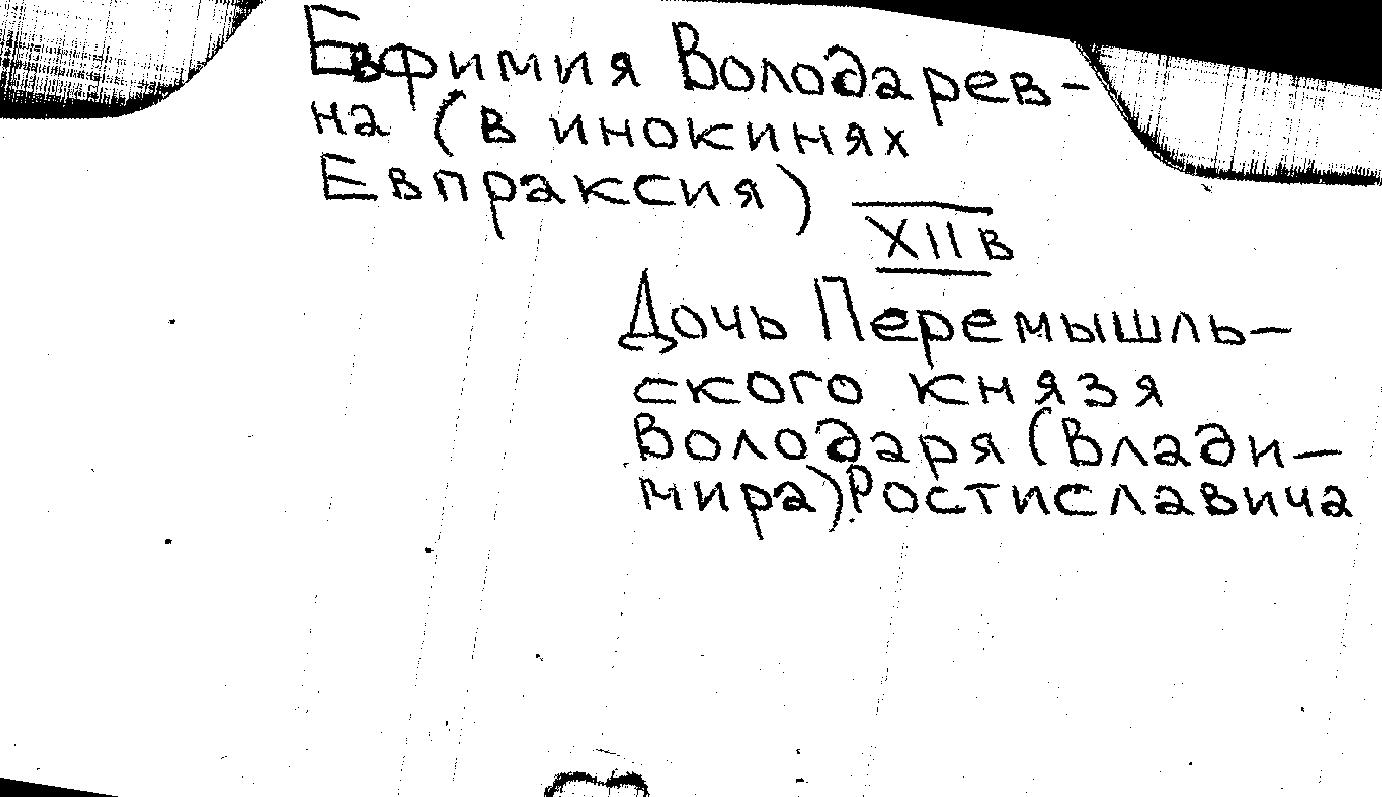 Евфимия Володарев-
на (в инокинях
Евпраксия)
XII в
Дочь Перемышль-
ского князя
Володаря (Влади-
мира) Ростиславича